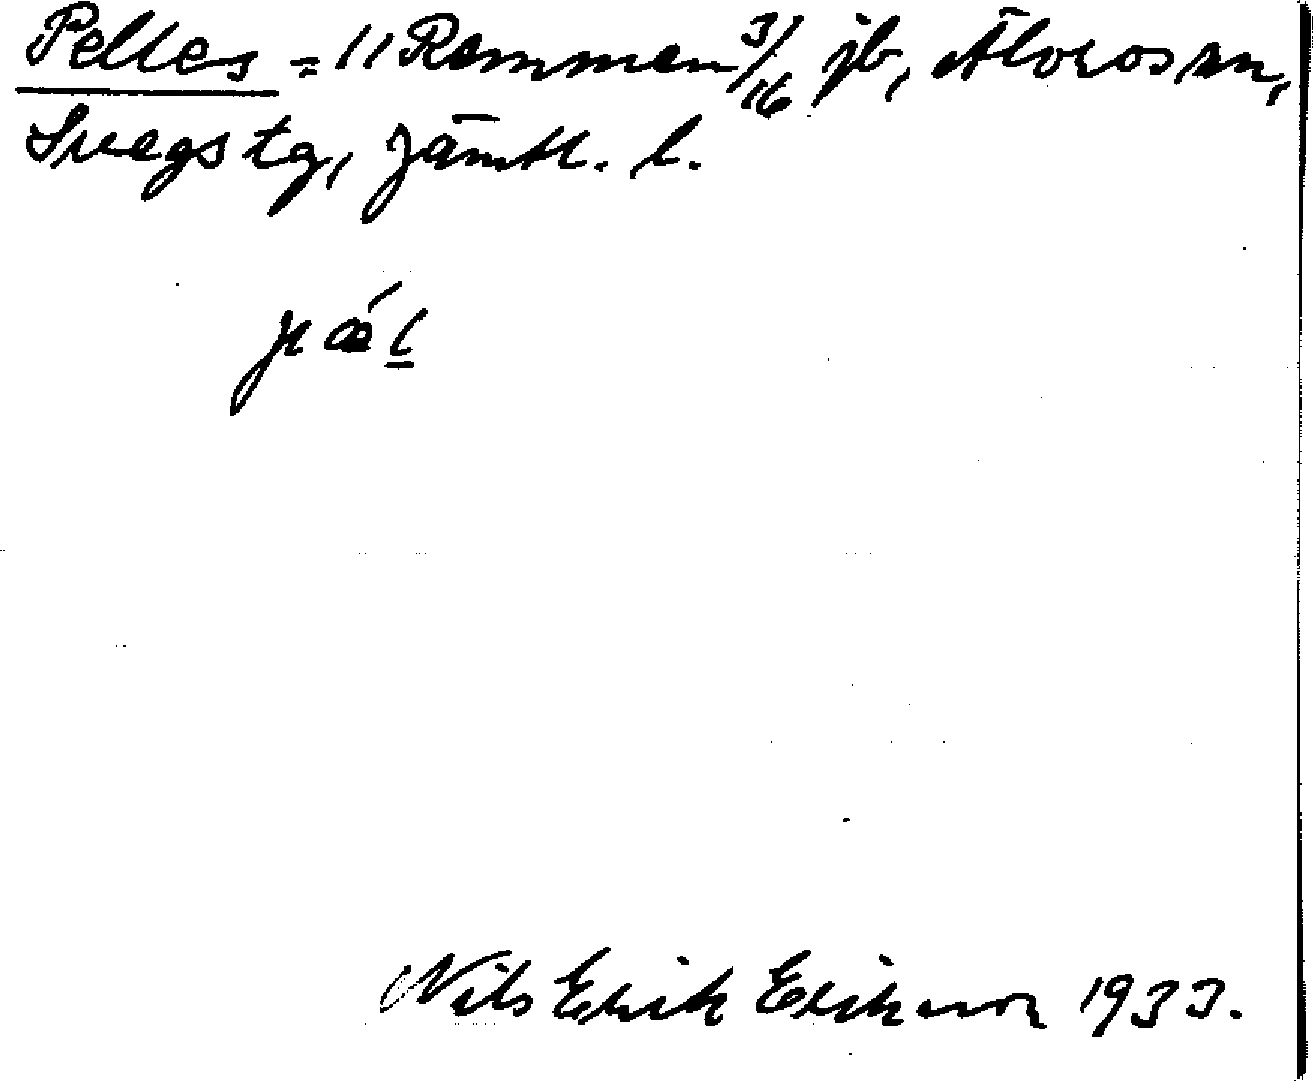 Pelles = 11 Remmen 3/16 jb, Älvros sn,
Svegs tg, Jämtl. l.
pæ´l
Nils Erik Erikson 1933.